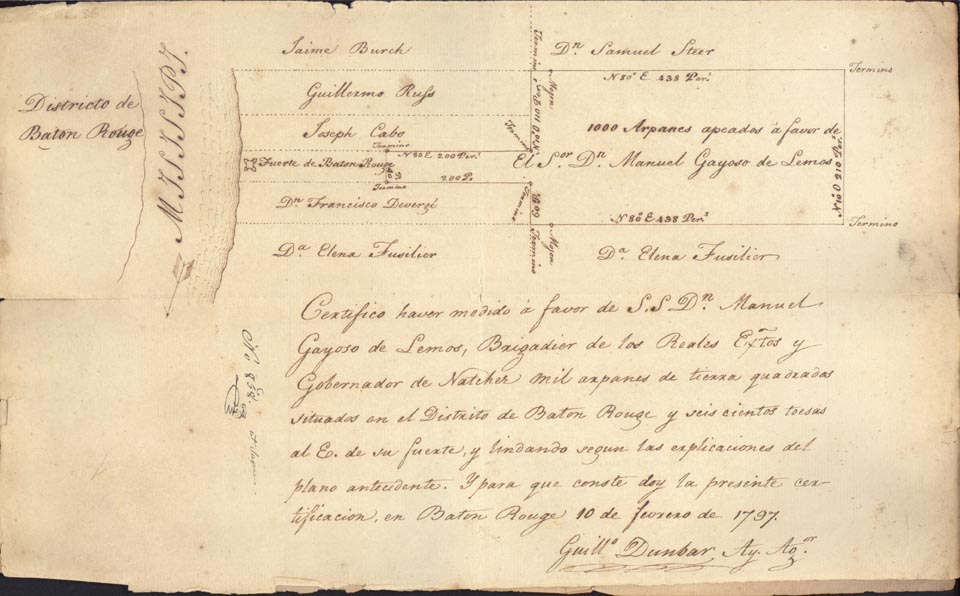 Jaime Burch
Dn Samuel Steer
Termino
N 80º E 438 Perˢ
Termino
Mojon
Districto de
Baton Rouge
MISSISIPI.
Guillermo Russ
Joseph Cabo
Termino
Termino
N 80 E 200 Perˢ
Fuerte de Baton Rouge
Termino
200 P.
1000 Arpanes apeados à favor de
El Sor Dn Manuel Gayoso de Lemos
N 10 O 210 Perˢ
Dn Francisco Devergé
Termino
Termino
Mojon
N 80º E 438 Perˢ
Termino
Da Elena Fusilier
Da Elena Fusilier
Certifico haver medido à favor de S.S Dn Manuel
Gayoso de Lemos, Brigadier de los Reales Extos y
Gobernador de Natchez mil arpanes de tierra quadrados
situados en el Distrito de Baton Rouge y seis cientos toesas
al E. de su fuerte, y lindando segun las explicaciones del
plano antecedente. Y para que conste doy la presente cer-
tificacion, en Baton Rouge 10 de febrero de 1797.
Guillo Dunbar, Ay. Agor